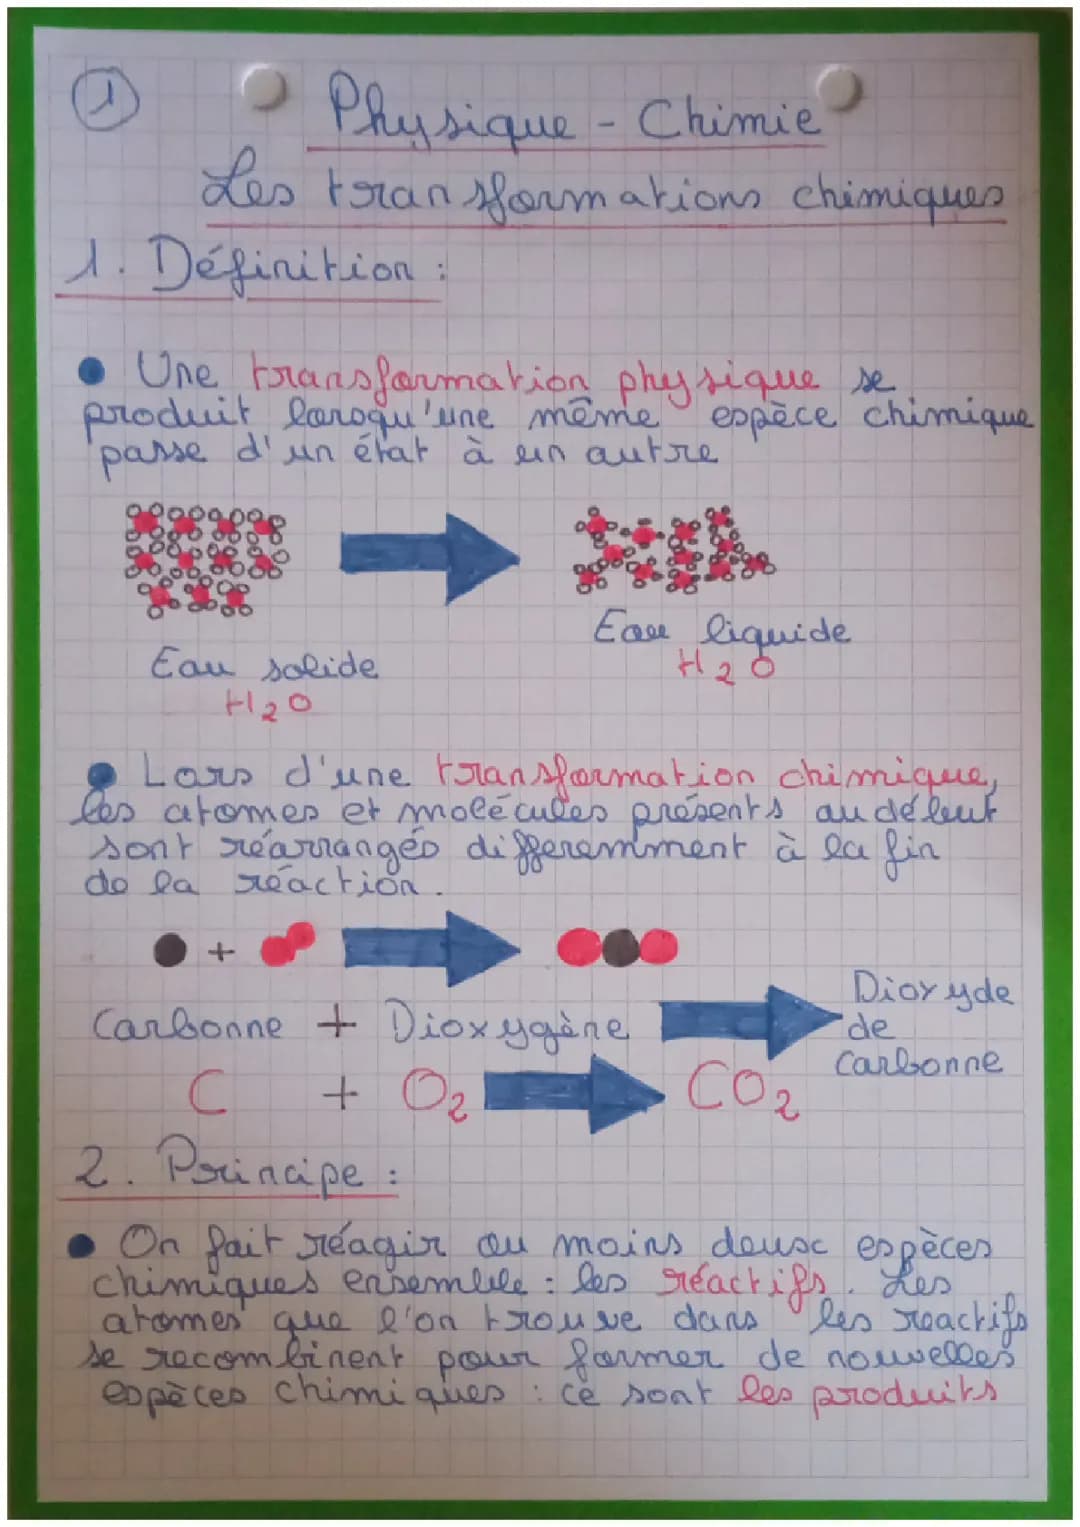 1
Physique - Chimie
Les transformations chimiques
1. Définition :
• Une transformation physique se
produit lorsqu'une même espèce chimique
passe d'un état à un autre
Eau solide
H2O
Eau liquide
H2O
• Lors d'une transformation chimique,
les atomes et molécules présents au début
sont réarrangés differemment à la fin
de la réaction.
+
Carbonne + Dioxygène
Dioxyde
de
carbonne
C + O2 CO2
2. Principe :
• On fait réagir au moins deux espèces
chimiques ensemble : les réactifs. Les
atomes que l'on trouve dans les reactifs
se recombinent pour former de nouvelles
espèces chimiques : ce sont les produits